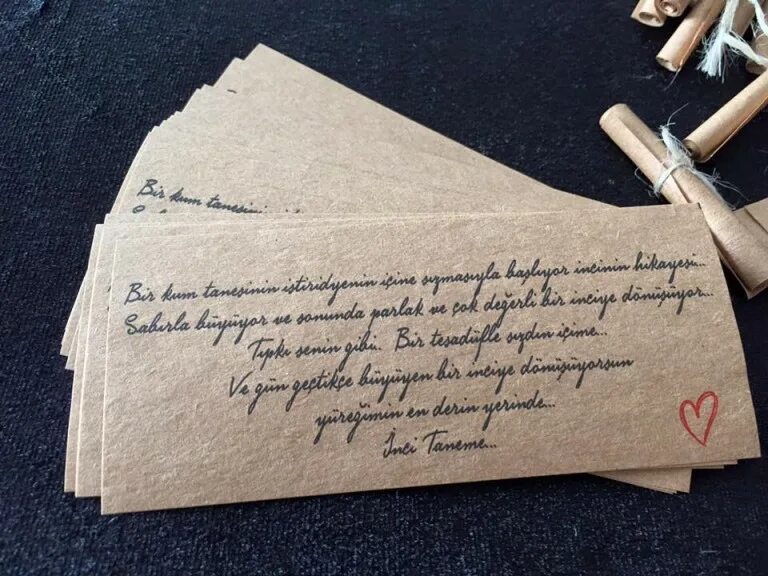 Bir kum tanesinin
Bir kum tanesinin istiridyenin içine sızmasıyla başlıyor incinin hikayesi...
Sabırla büyüyor ve sonunda parlak ve çok değerli bir inciye dönüşüyor...
Tıpkı senin gibi.. Bir tesadüfle sızdın içime...
Ve gün geçtikçe büyüyen bir inciye dönüşüyorsun
yüreğimin en derin yerinde...
İnci Taneme...